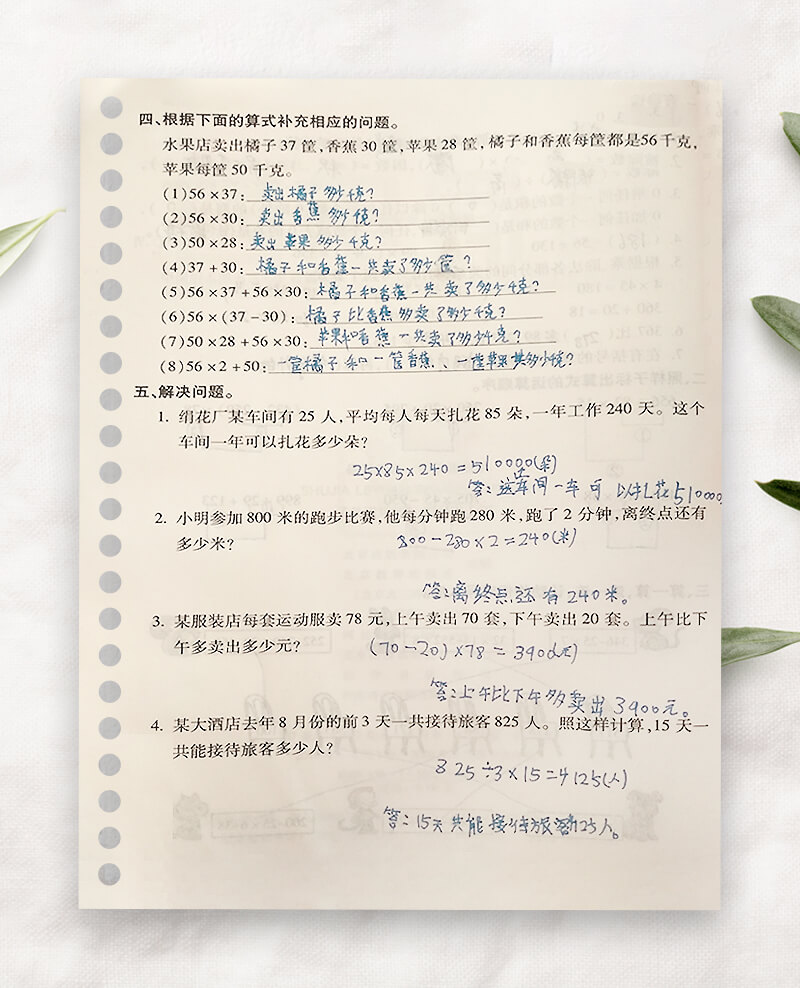 四、根据下面的算式补充相应的问题。
水果店卖出橘子37筐,香蕉30筐,苹果28筐,橘子和香蕉每筐都是56千克,
苹果每筐50千克。
(1)56×37: 卖出橘子多少千克?
(2)56×30: 卖出香蕉多少千克?
(3)50×28: 卖出苹果多少千克?
(4)37+30: 橘子和香蕉一共卖了多少筐?
(5)56×37+56×30: 橘子和香蕉一共卖了多少千克?
(6)56×(37-30): 橘子比香蕉多卖了多少千克?
(7)50×28+56×30: 苹果和香蕉一共卖了多少千克?
(8)56×2+50: 一筐橘子和一筐香蕉、一筐苹果共多少千克?
五、解决问题。
1. 绢花厂某车间有25人,平均每人每天扎花85朵,一年工作240天。这个
车间一年可以扎花多少朵?
25×85×240=510000(朵)
答:这车间一年可以扎花510000
2. 小明参加800米的跑步比赛,他每分钟跑280米,跑了2分钟,离终点还有
多少米?
800-280×2=240(米)
答:离终点还有240米。
3. 某服装店每套运动服卖78元,上午卖出70套,下午卖出20套。上午比下
午多卖出多少元?
(70-20)×78=3900(元)
答:上午比下午多卖出3900元。
4. 某大酒店去年8月份的前3天一共接待旅客825人。照这样计算,15天一
共能接待旅客多少人?
825÷3×15=4125(人)
答:15天共能接待旅客4125人。